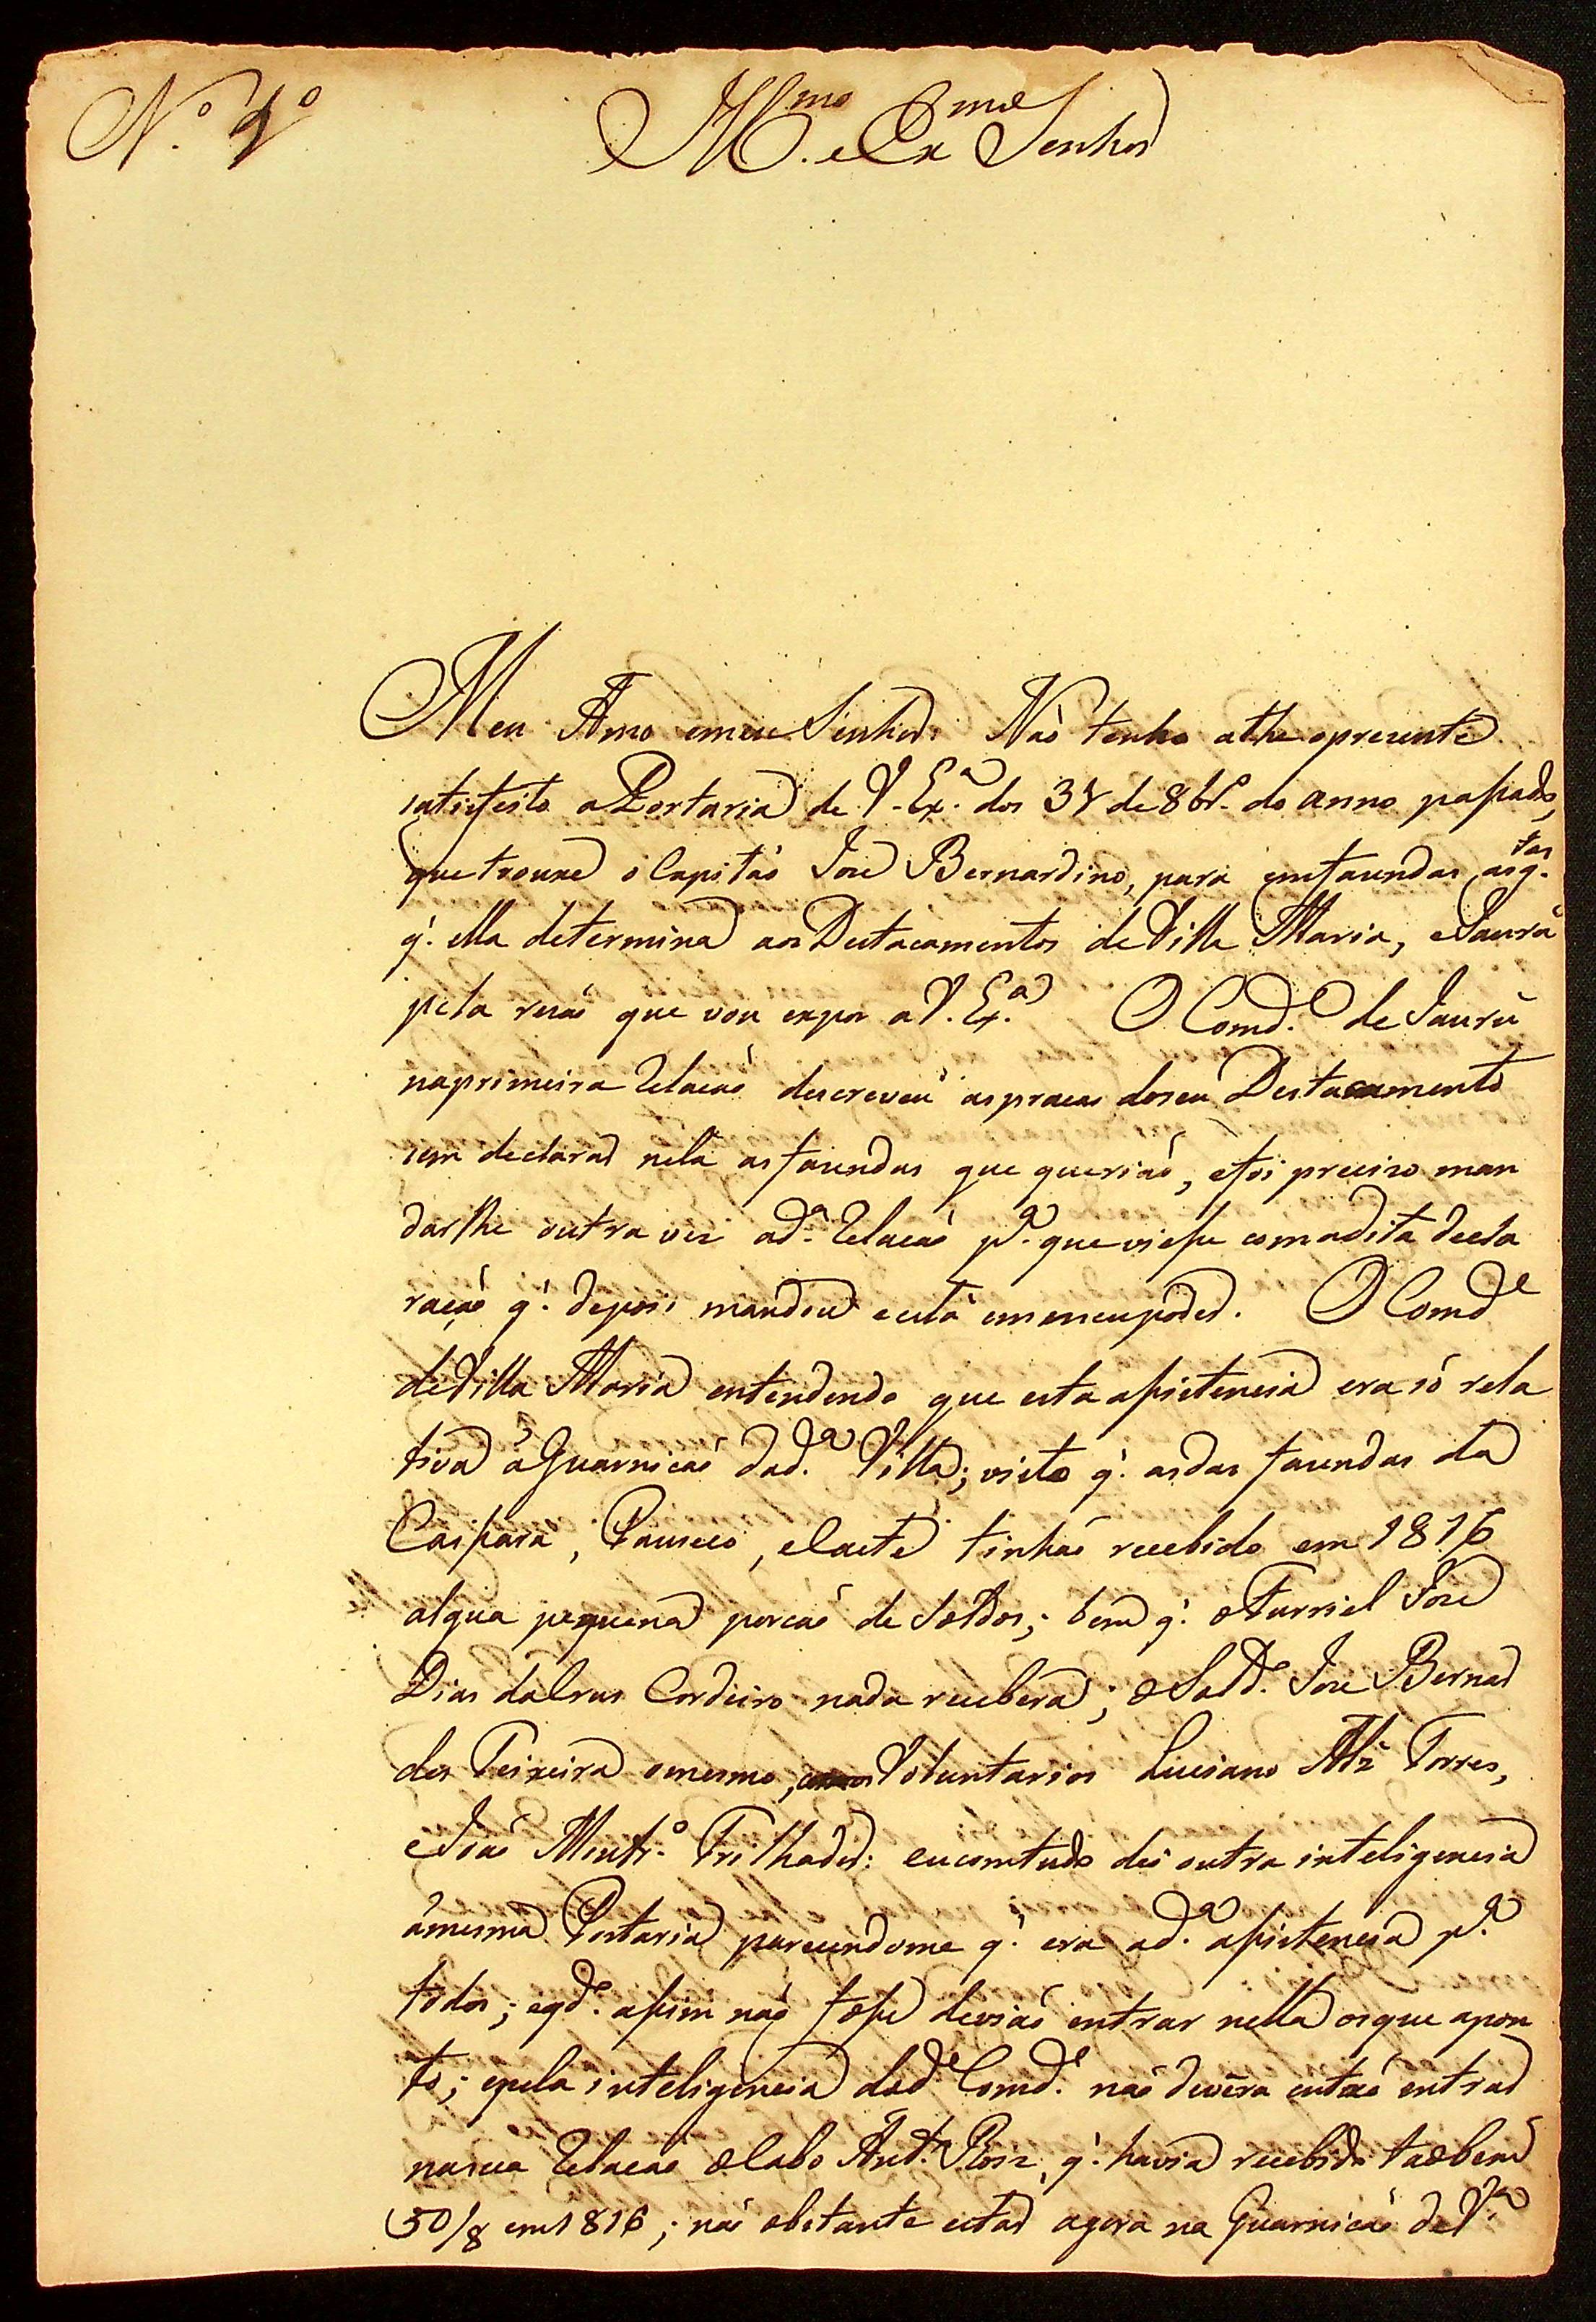 N.º 1º
Ill.mo e Ex.mo Senhor
Meu Amo emeu Senhor. Naõ tenho athe opresente
satisfeito aPortaria de V. Ex.ª dos 31 de 8br.º do anno passado,
que trouxe oCapitaõ Joze Bernardino, para em fazendas asq.tas
q'. ella determina aos Destacamentos de Villa Maria, eJaurú
pela rezaõ que vou expor a V. Ex.ª O Comd.e de Jaurú
naprimeira Relacaõ descreveu aspracas doseu Destacamento
sem declarar nela asfazendas que queriaõ, efoi precizo man
darlhe outra vez ad.ª Relacaõ p.ª que viesse comadita decla
raçaõ q'. depois mandou eestá emmeupoder. O Comd.e
deVilla Maria entendendo que esta assistencia era só rela
tiva áGuarnicaõ dad.ª Villa; visto q'. asdas fazendas da
Caissara, e tinhaõ recebido em 1816
algua pequena porcaõ de Soldos; bem q'. oFurriel Joze
Dias daCrus Cordeiro nada recebera; oSold.º Joze Bernar
des Teixeira omesmo, Voluntarios Luciano Alz' Torres,
eJoaõ Mont.rº Trilhador: eucomtudo dei outra inteligencia
ámesma Portaria parecendome q'. era ad.ª assistencia p.ª
todos; eqd.º assim naõ fosse deviaõ entrar nella osque apon
to; epela inteligencia dod.º Comd.e naõ devêra entaõ entrar
nasua Relacaõ oCabo Ant.º Roiz', q'. havia recebido taõbem
50/8 em 1816; naõ obstante estar agora na Guarnicaõ deV.ª